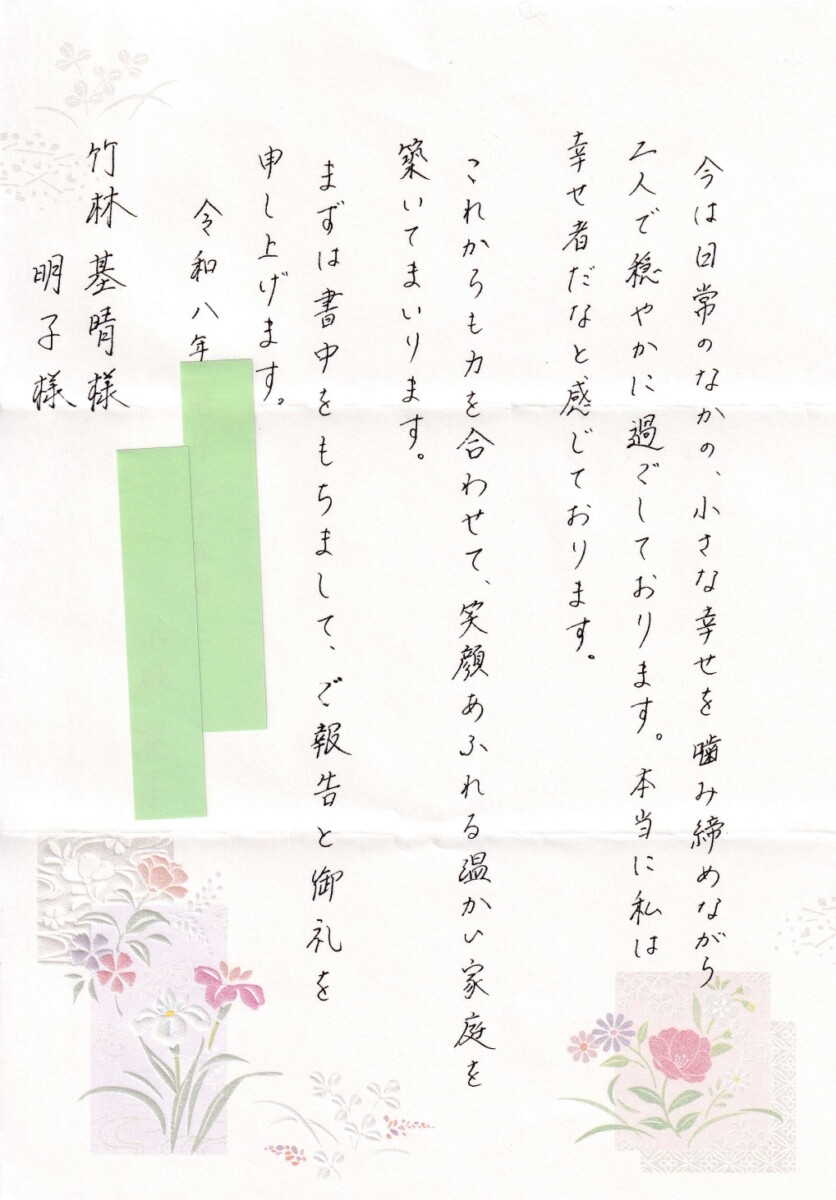 今は日常のなかの、小さな幸せを噛み締めながら
二人で穏やかに過ごしております。本当に私は
幸せ者だなと感じております。
これからも力を合わせて、笑顔あふれる温かい家庭を
築いてまいります。
まずは書中をもちまして、ご報告と御礼を
申し上げます。
令和八年
竹林基晴様
明子様